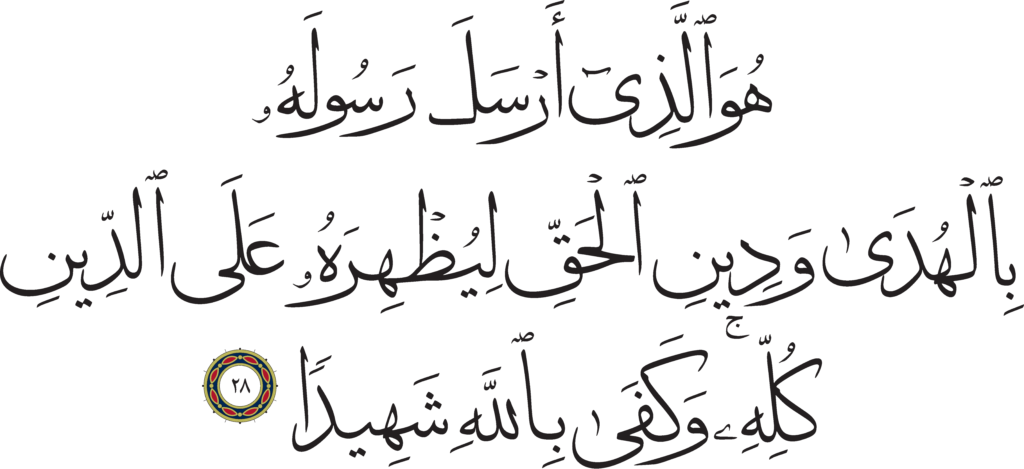 هُوَ ٱلَّذِىٓ أَرْسَلَ رَسُولَهُۥ
بِٱلْهُدَىٰ وَدِينِ ٱلْحَقِّ لِيُظْهِرَهُۥ عَلَى ٱلدِّينِ
كُلِّهِۦ ۚ وَكَفَىٰ بِٱللَّهِ شَهِيدًا ٢٨